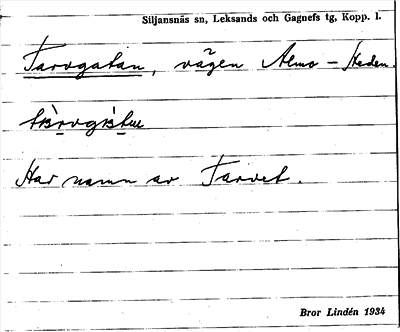 Siljansnäs sn, Leksands och Gagnefs tg, Kopp. l.
Tarvgatan, vägen Almo - Heden.
Har namn av Tarvet.
Bror Lindén 1934